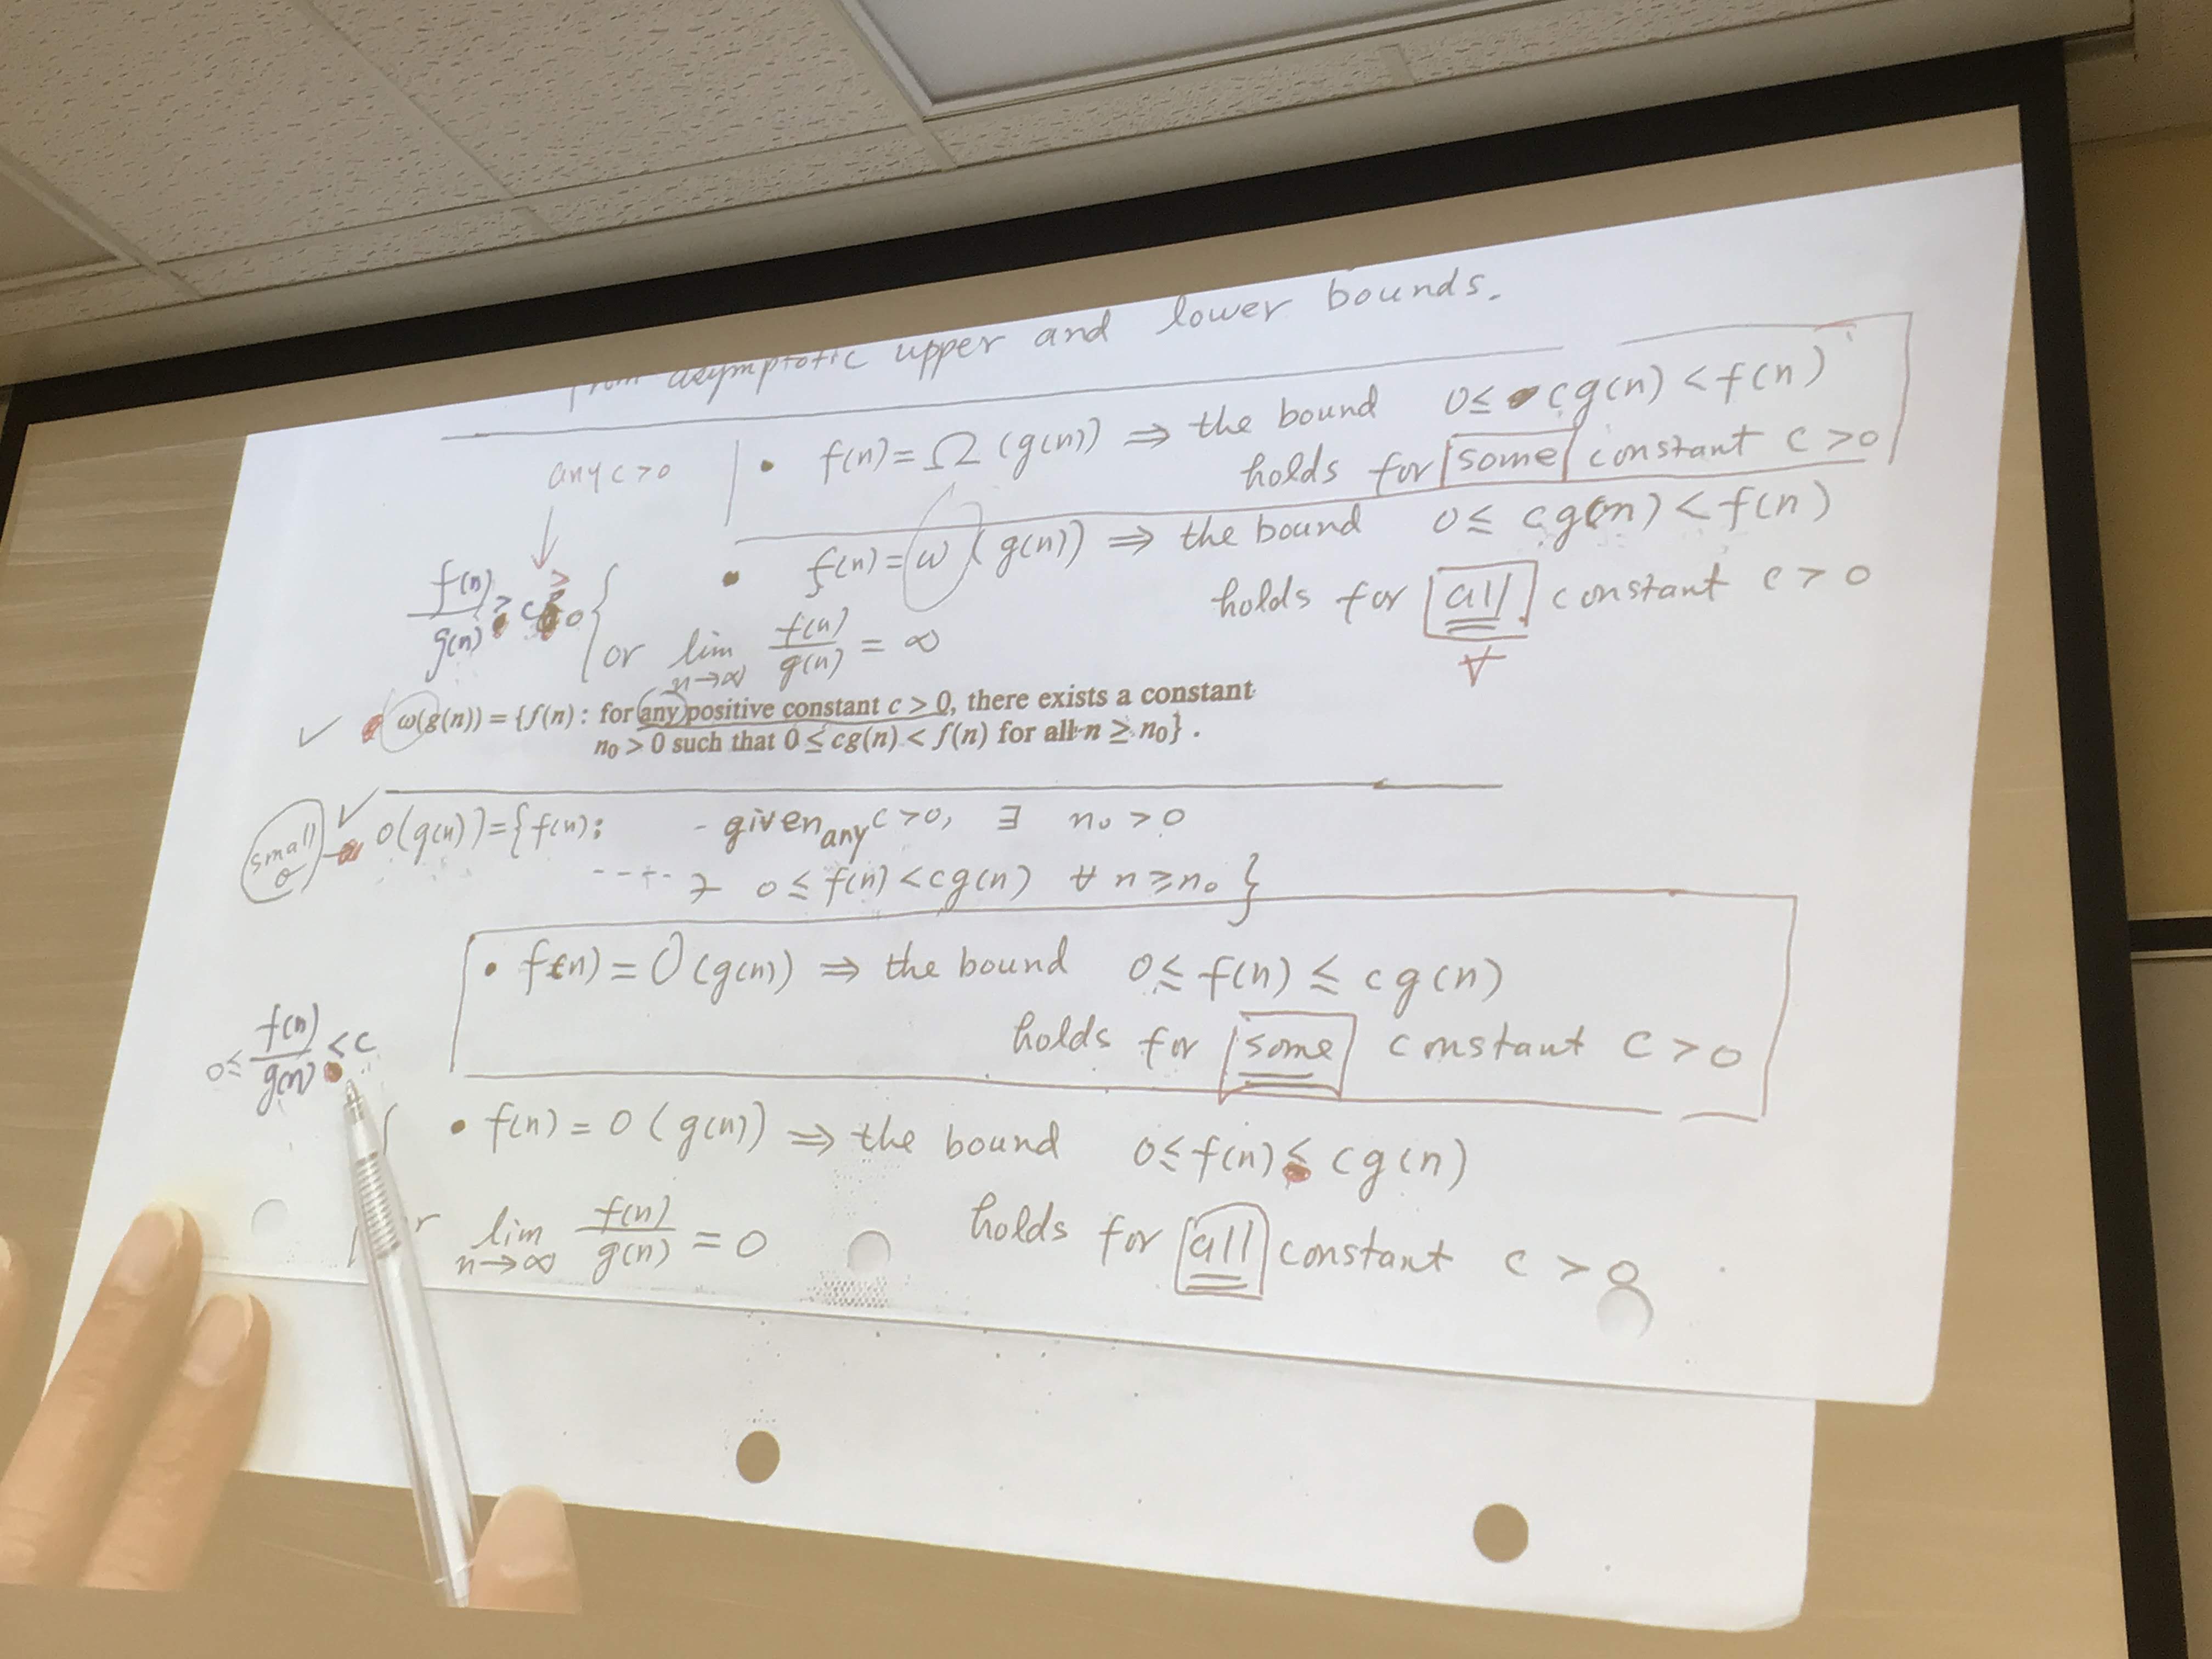 from asymptotic upper and lower bounds.
any c > 0
• f(n) = Ω (g(n)) ⇒ the bound 0 ≤ cg(n) < f(n)
holds for some constant c > 0
• f(n) = ω (g(n)) ⇒ the bound 0 ≤ cg(n) < f(n)
holds for all constant c > 0
∀
f(n)/g(n) > c > 0
or lim n→∞ f(n)/g(n) = ∞
ω(g(n)) = {f(n) : for any positive constant c > 0, there exists a constant
n₀ > 0 such that 0 ≤ cg(n) < f(n) for all n ≥ n₀} .
small o
o(g(n)) = { f(n): - given any c > 0, ∃ n₀ > 0
0 ≤ f(n) < cg(n) ∀ n ≥ n₀ }
• f(n) = O (g(n)) ⇒ the bound 0 ≤ f(n) ≤ cg(n)
holds for some constant c > 0
0 ≤ f(n)/g(n) < c
• f(n) = o (g(n)) ⇒ the bound 0 ≤ f(n) < cg(n)
lim n→∞ f(n)/g(n) = 0
holds for all constant c > 0